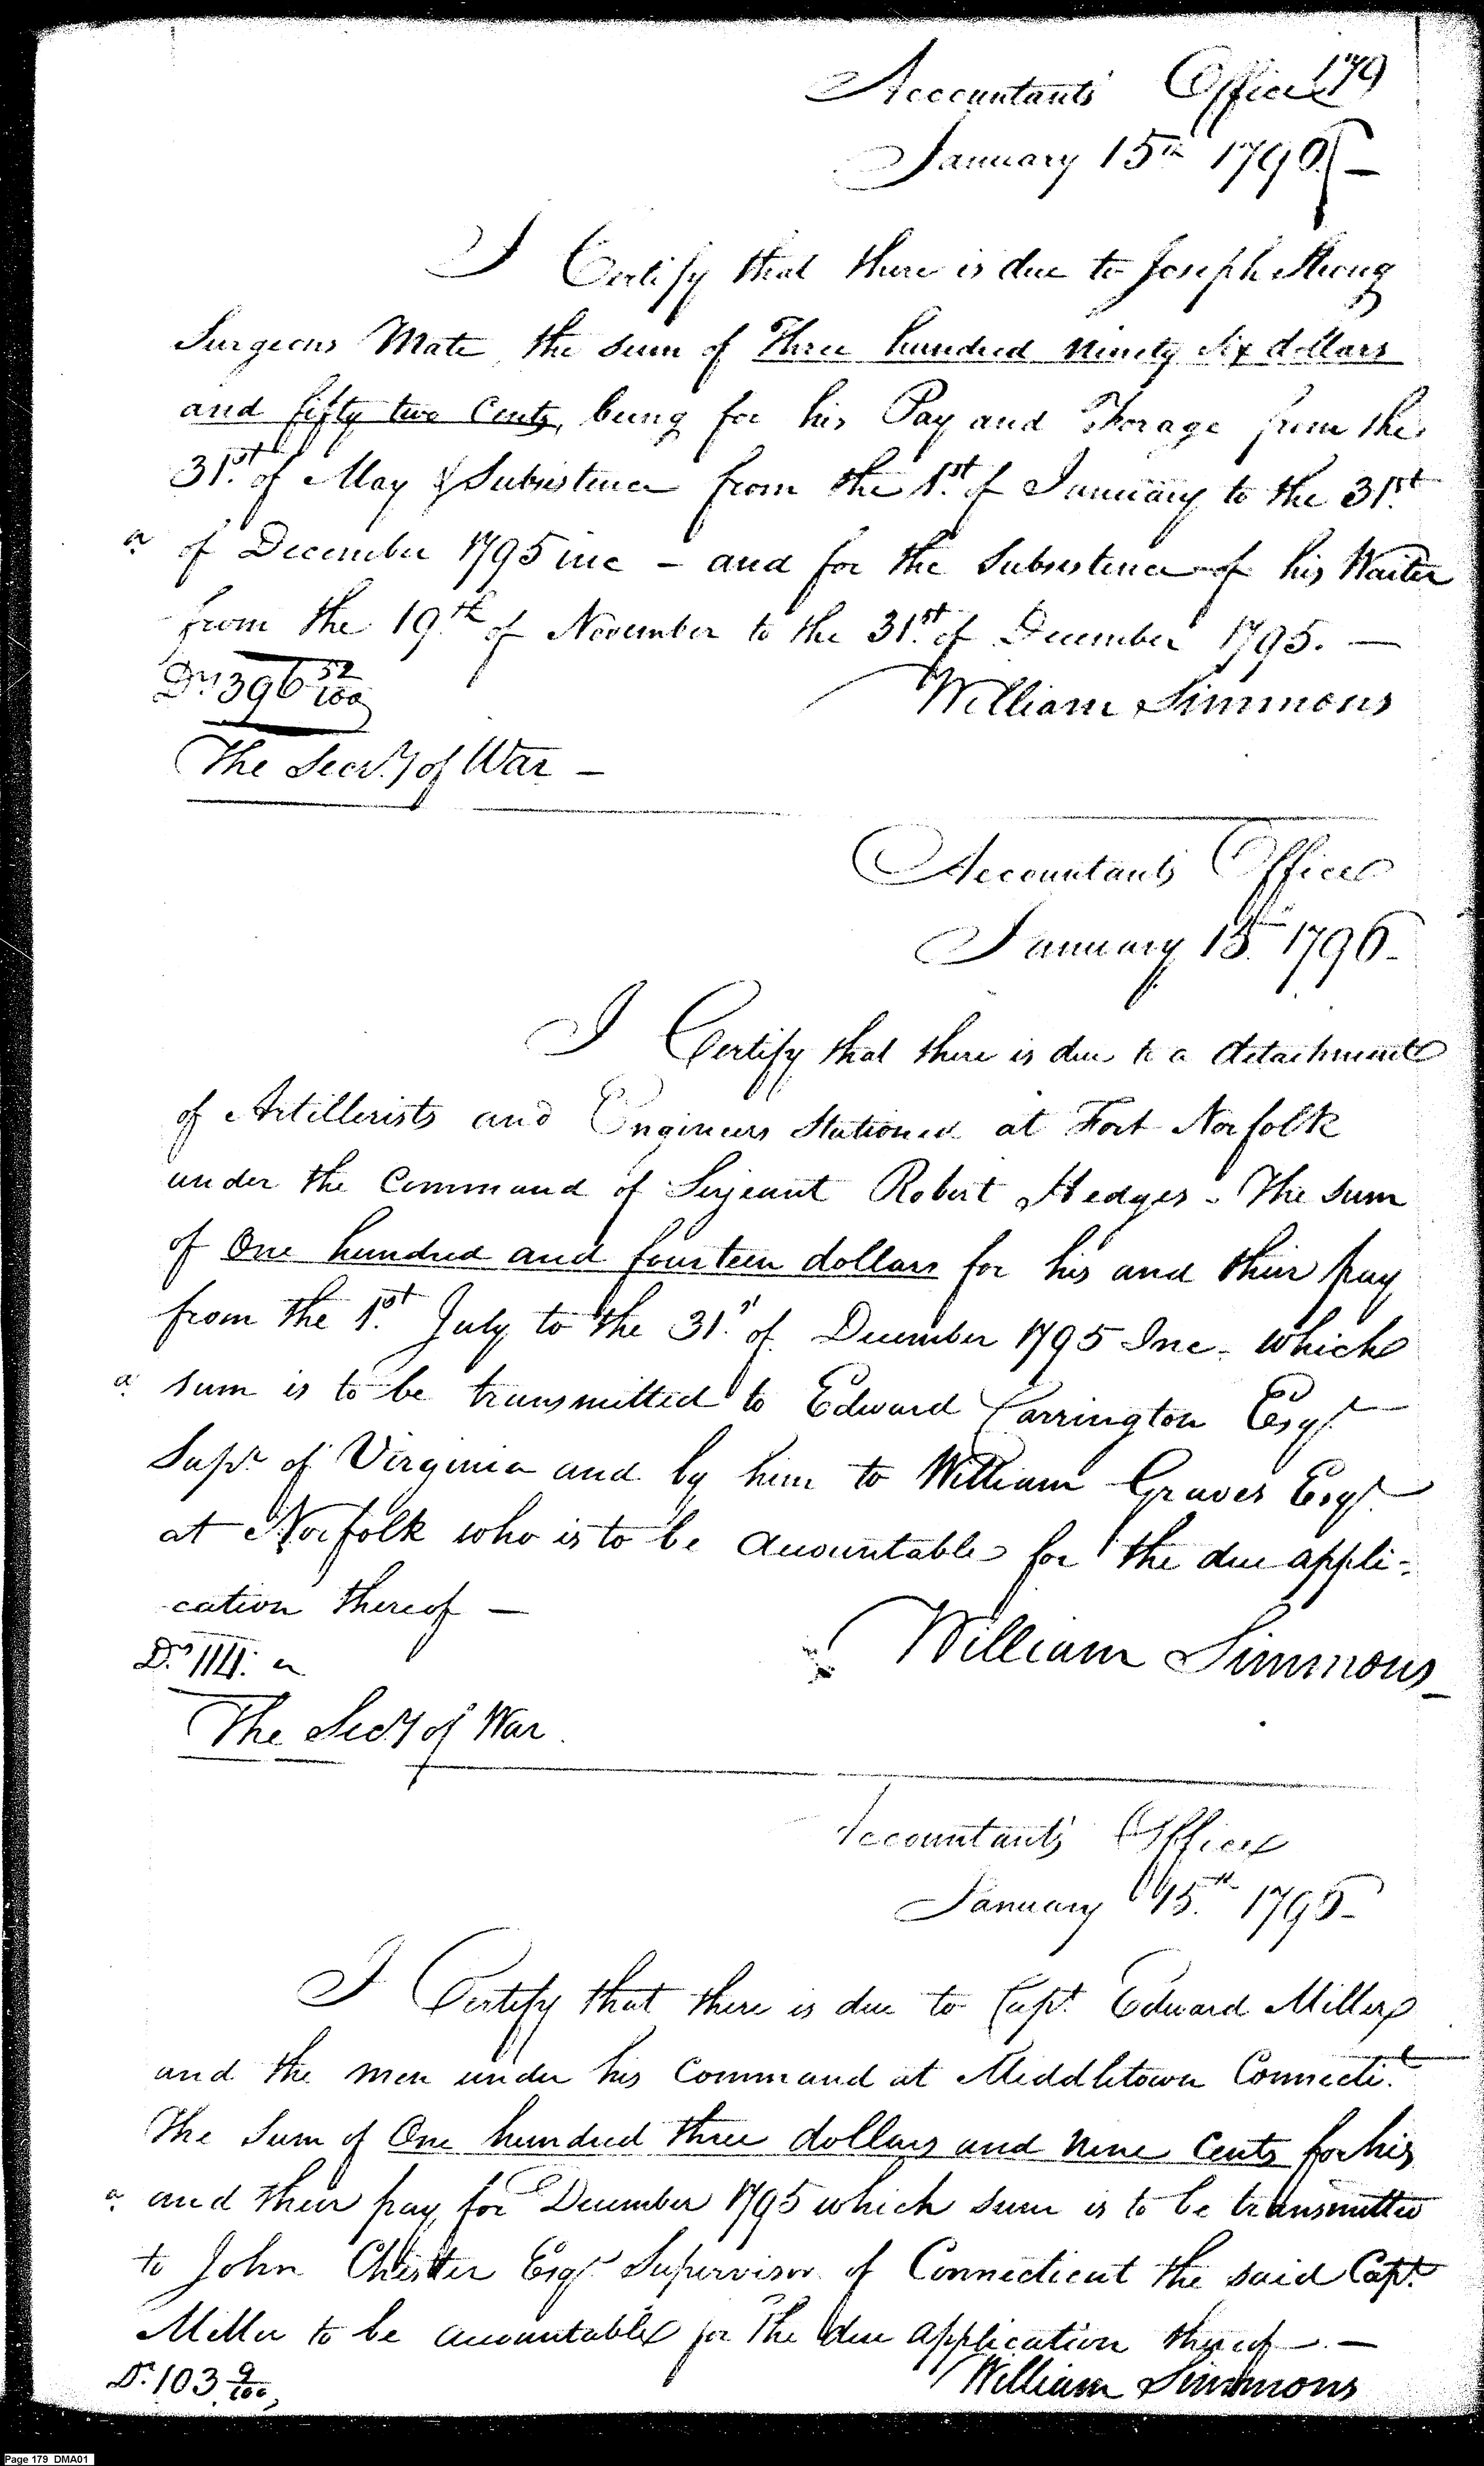 179
Accountants Office
January 15th 1796 —
I Certify that there is due to Joseph Strong
Surgeons Mate, the sum of Three hundred ninety six dollars
and fifty two Cents, being for his Pay and Forage from the
31st. of May & Subsistence from the 1st. of January to the 31st.
a. of December 1795 inc – and for the Subsistence of his Waiter
from the 19th. of November to the 31st. of December 1795. —
Drs 396 52/100
William Simmons
The Secry of War –
Accountants Office
January 15th. 1796–
I Certify that there is due to a detachment
of Artillerists and Engineers Stationed at Fort Norfolk
under the Command of Serjeant Robert Hedges – The sum
of One hundred and fourteen dollars for his and their pay
from the 1st. July to the 31st. of December 1795 Inc. which
a. sum is to be transmitted to Edward Carrington Esqr.
Supr. of Virginia and by him to William Graves Esqr.
at Norfolk who is to be accountable for the due appli-
cation thereof —
Drs 114.
William Simmons
The Secy of War.
Accountants Office
January 15.th 1796–
I Certify that there is due to Capt. Edward Miller
and the men under his Command at Middletown Connecti.t
The Sum of One hundred three dollars and nine Cents for his
a. and their pay, for December 1795 which sum is to be transmitted
to John Chester Esqr Supervisor of Connecticut the said Capt.
Miller to be accountable for the due application thereof —
Dr. 103 9/100,
William Simmons
Page 179 DMA01